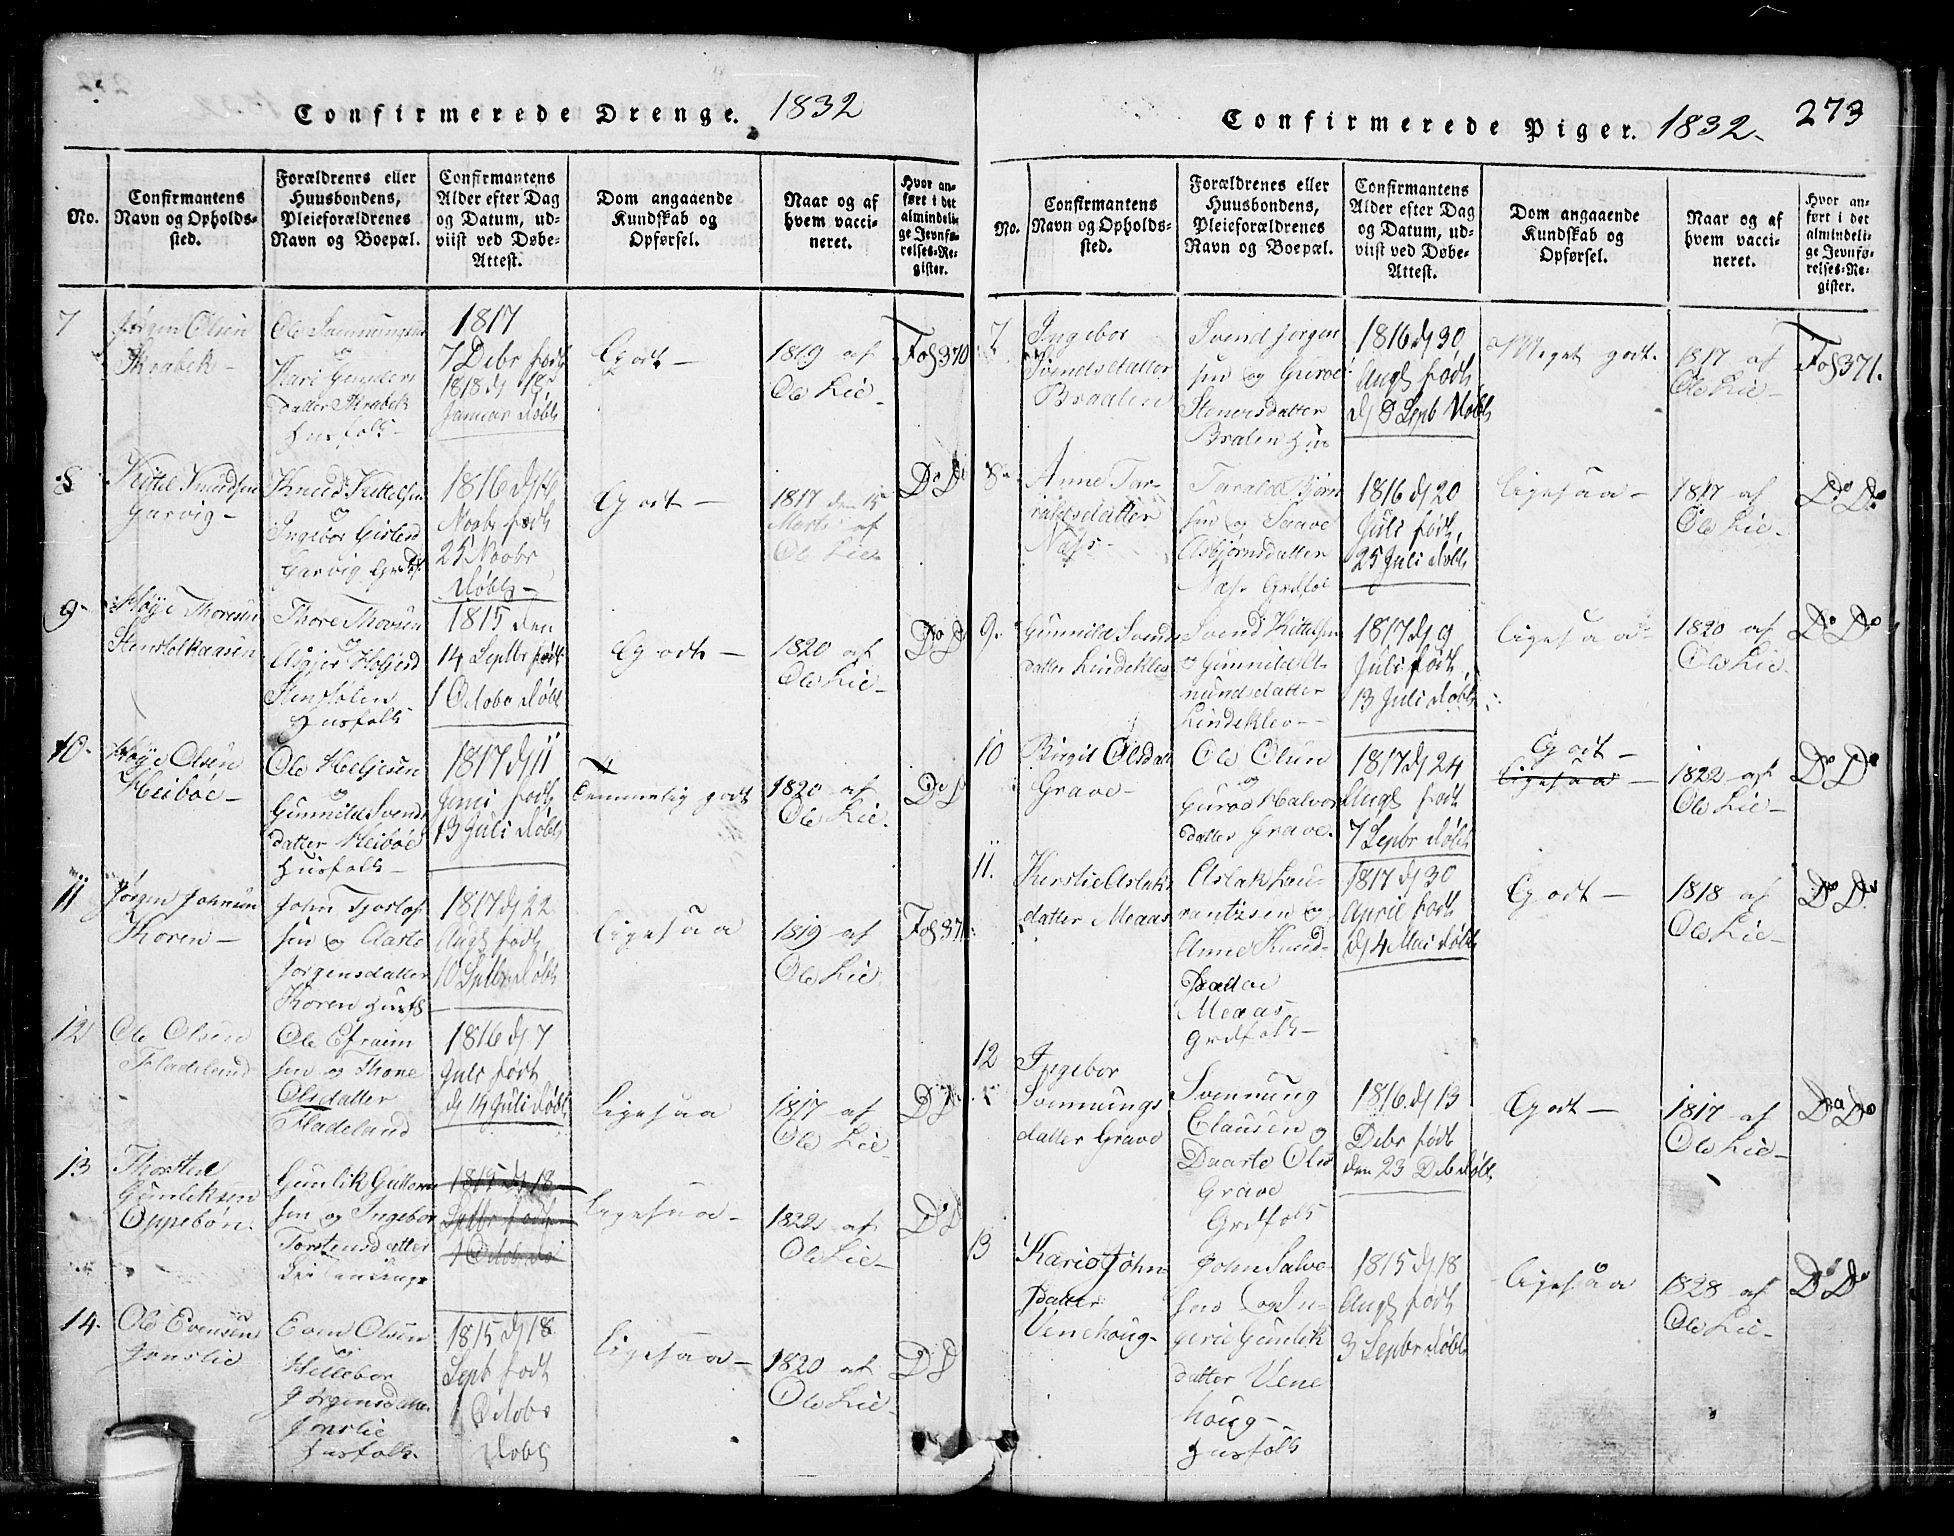 Confirmerede Drenge. 1832
No.
Confirmantens
Navn og Opholds-
sted.
Forældrenes eller
Huusbondens,
Pleieforældrenes
Navn og Boepæl.
Confirmantens
Alder efter Dag
og Datum, ud-
viist ved Døbe-
Attest.
Dom angaaende
Kundskab og
Opførsel.
Naar og af
hvem vacci-
neret.
Hvor an-
ført i det
almindeli-
ge Jevnfø-
relses-Re-
gister.
7
Jørgen Olsen
Skrabek-
Ole Svennungsen
og
Kari Gunders
datter Skrabek
Husfolk-
1817
7 Debr født
1818 dj 18
Januar døbt
Godt-
1819 af
Ole Lie-
Fol 370
8
Kittel Knudsen
Garvig-
Knud Kittelsen
og
Ingebor Gislesd
Garvig
1816 dj 16
Novbr født
25 Novbr
døbt-
Godt-
1817 den 15
Marts af
Ole Lie-
Do Do
9-
Høye Thoresen
Thore
og
Husfolk
1815 den
14 Septbr født
1 Octobr døbt
Godt-
1820 af
Ole Lie-
Do Do
10-
Høye Olsen
Heibøe-
Ole Heljesen
og
Gunnild Svends
datter Heibøe
Husfolk-
1817 dj 11
Juni født
13 Juli døbt
Temmelig godt
1820 af
Ole Lie.
Do Do
11
Jørgen Johnsen
Koren-
John Tjostof
sen og Aaste
Jørgensdatter
Koren Husf
1817 dj 22
Augt født
10 Septbr døbt
Ligesaa
1819 af
Ole Lie.
Fol 371
12
Ole Olsen
Fladeland
Ole Efraim
sen og Thone
Olsdatter
Fladeland
1816 dj 7
Juli født
dj 14 Juli døbt
Ligesaa
1817 af
Ole Lie-
Do Do
13
Thorsten
Gunleksen
Oppebøn.
Gunlik Guttorm
sen og Ingebor
Torstensdatter
1815 dj 18
Septbr født
1 Octobr dø
Ligesaa-
1822 af
Ole Lie-
Do Do
14.
Ole Evensen
Jonslie
Even Olsen
og
Hellebor
Jørgensdatter
Jonslie
Husfolk.
1815 dj 18
Septb født
1 Octobr
døbt
Ligesaa-
1820 af
Ole Lie-
Do Do
Confirmerede Piger. 1832- 273
No.
Confirmantens
Navn og Opholds-
sted.
Forældrenes eller
Huusbondens,
Pleieforældrenes
Navn og Boepæl.
Confirmantens
Alder efter Dag
og Datum, ud-
viist ved Døbe-
Attest.
Dom angaaende
Kundskab og
Opførsel.
Naar og af
hvem vacci-
neret.
Hvor an-
ført i det
almindeli-
ge Jevnfø-
relses-Re-
gister.
7
Ingebor
Svendsdatter
Braalen
Svend Jørgen
sen og Guroe
Stenersdatter
Bralen Hus
1816 dj 30
Augt født
dj 8 Septb døbt
Meget godt.
1817 af
Ole Lie-
Fol 371.
8-
Anne Tar-
raldsdatter
Næs-
Tarald Bjørn
sen og Saave
Asbjørnsdatter
Næs. Grdfol
1816 dj 20
Juli født
25 Juli døbt
Ligesaa-
1817 af
Ole Lie-
Do Do
9.
Gunnild Svends
datter Lindeklev
Svend Kittelsen
og Gunnild
mundsdatter
Lindeklev-
1817 dj 9
Juli født
13 Juli døbt
Ligesaa-
1820 af
Ole Lie.
Do Do
10
Birgit Olsdat
Grave-
Ole Olsen
og
Guroe Halvor
datter Grave.
1817 dj 24
Augt født
7 Septbr døbt
Godt-
Ligesaa
1822 af
Ole Lie-
Do Do
11.
Kirstie Aslaks
datter Meaas
Aslak Lau-
rantzsen og
Anne Knud-
datter
Meaas
Grdfolk-
1817 dj 30
April født
dj 4 Mai døbt
Godt-
1818 af
Ole Lie-
Do Do
12
Ingebor
Svennungs
datter Grave
Svennung
Clausen og
Daarte Ols
Grave
Grdfolk
1816 dj 13
Debr født
den 23 Deb døbt
Godt-
1817 af
Ole Lie-
Do Do
13
Karie John
datter
Venehoug-
John Salve-
sen og In-
gerie Gunlik
datter Vene
houg-
Husfolk
1815 dj 18
Augt født
3 Septbr døbt
Ligesaa
1828 af
Ole Lie-
Do Do